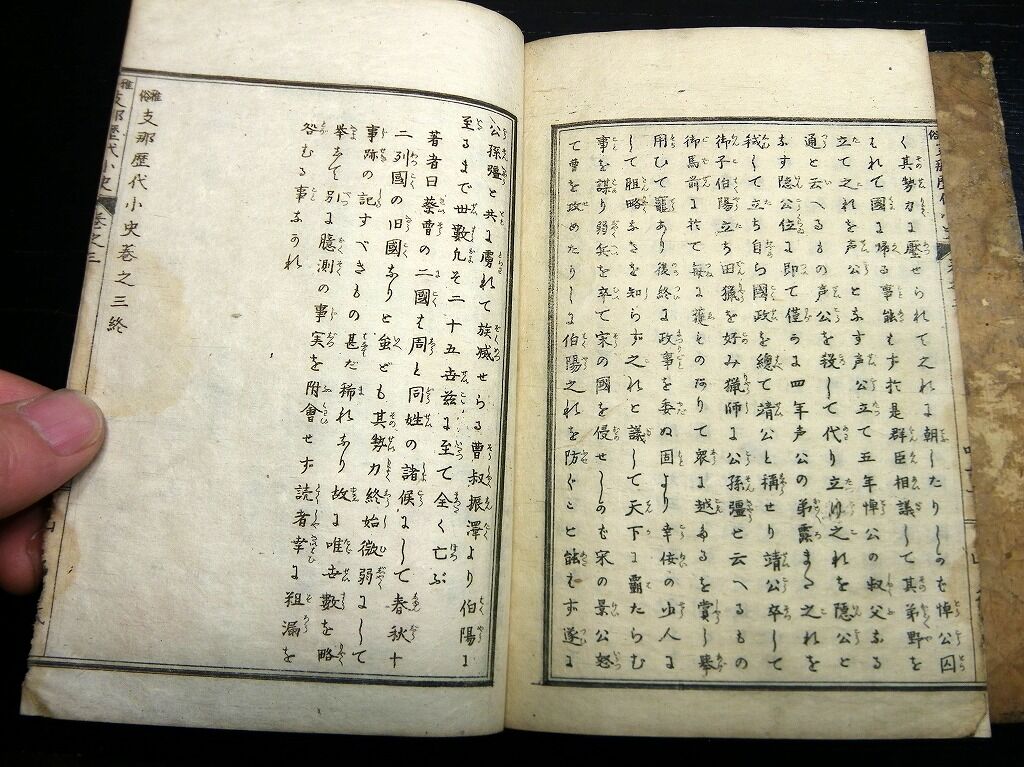 く其勢力に壓せられて之れに朝したりしかも悼公囚
はれて國に帰る事能はず於是群臣相議して其弟野を
立て之れを声公となす声公立て五年悼公の叔父なる
通と云へるもの声公を殺して代り立ぬ之れを隠公と
なす隠公位に即て僅かに四年声公の弟露また之れを
弑して立ち自ら國政を總て靖公と稱せり靖公卒して
御子伯陽立ち田獵を好み獵師に公孫彊と云へるもの
御馬前に於て毎に獲ものありて衆に越たるを賞し擧
用ひて寵あり後終に政事を委ぬ固より幸佞の少人に
して胆略なきを知らず之れと議して天下に覇たらむ
事を謀り弱兵を卒て宋の國を侵せしかも宋の景公怒
て曹を攻めたりしに伯陽之れを防ぐこと能はず遂に
公孫彊と共に虜れて族滅せらる曹叔振澤より伯陽に
至るまで世數凡そ二十五世茲に至て全く亡ぶ
著者曰蔡曹の二國は周と同姓の諸侯にして春秋十
二列國の旧國なりと虽ども其勢力終始微弱にして
事跡の記すべきもの甚だ稀れなり故に唯世數を略
挙して別に臆測の事実を附會せず読者幸に粗漏を
咎むる事なかれ
雅俗支那歴代小史巻之三終
雅俗支那歴代小史 巻之三